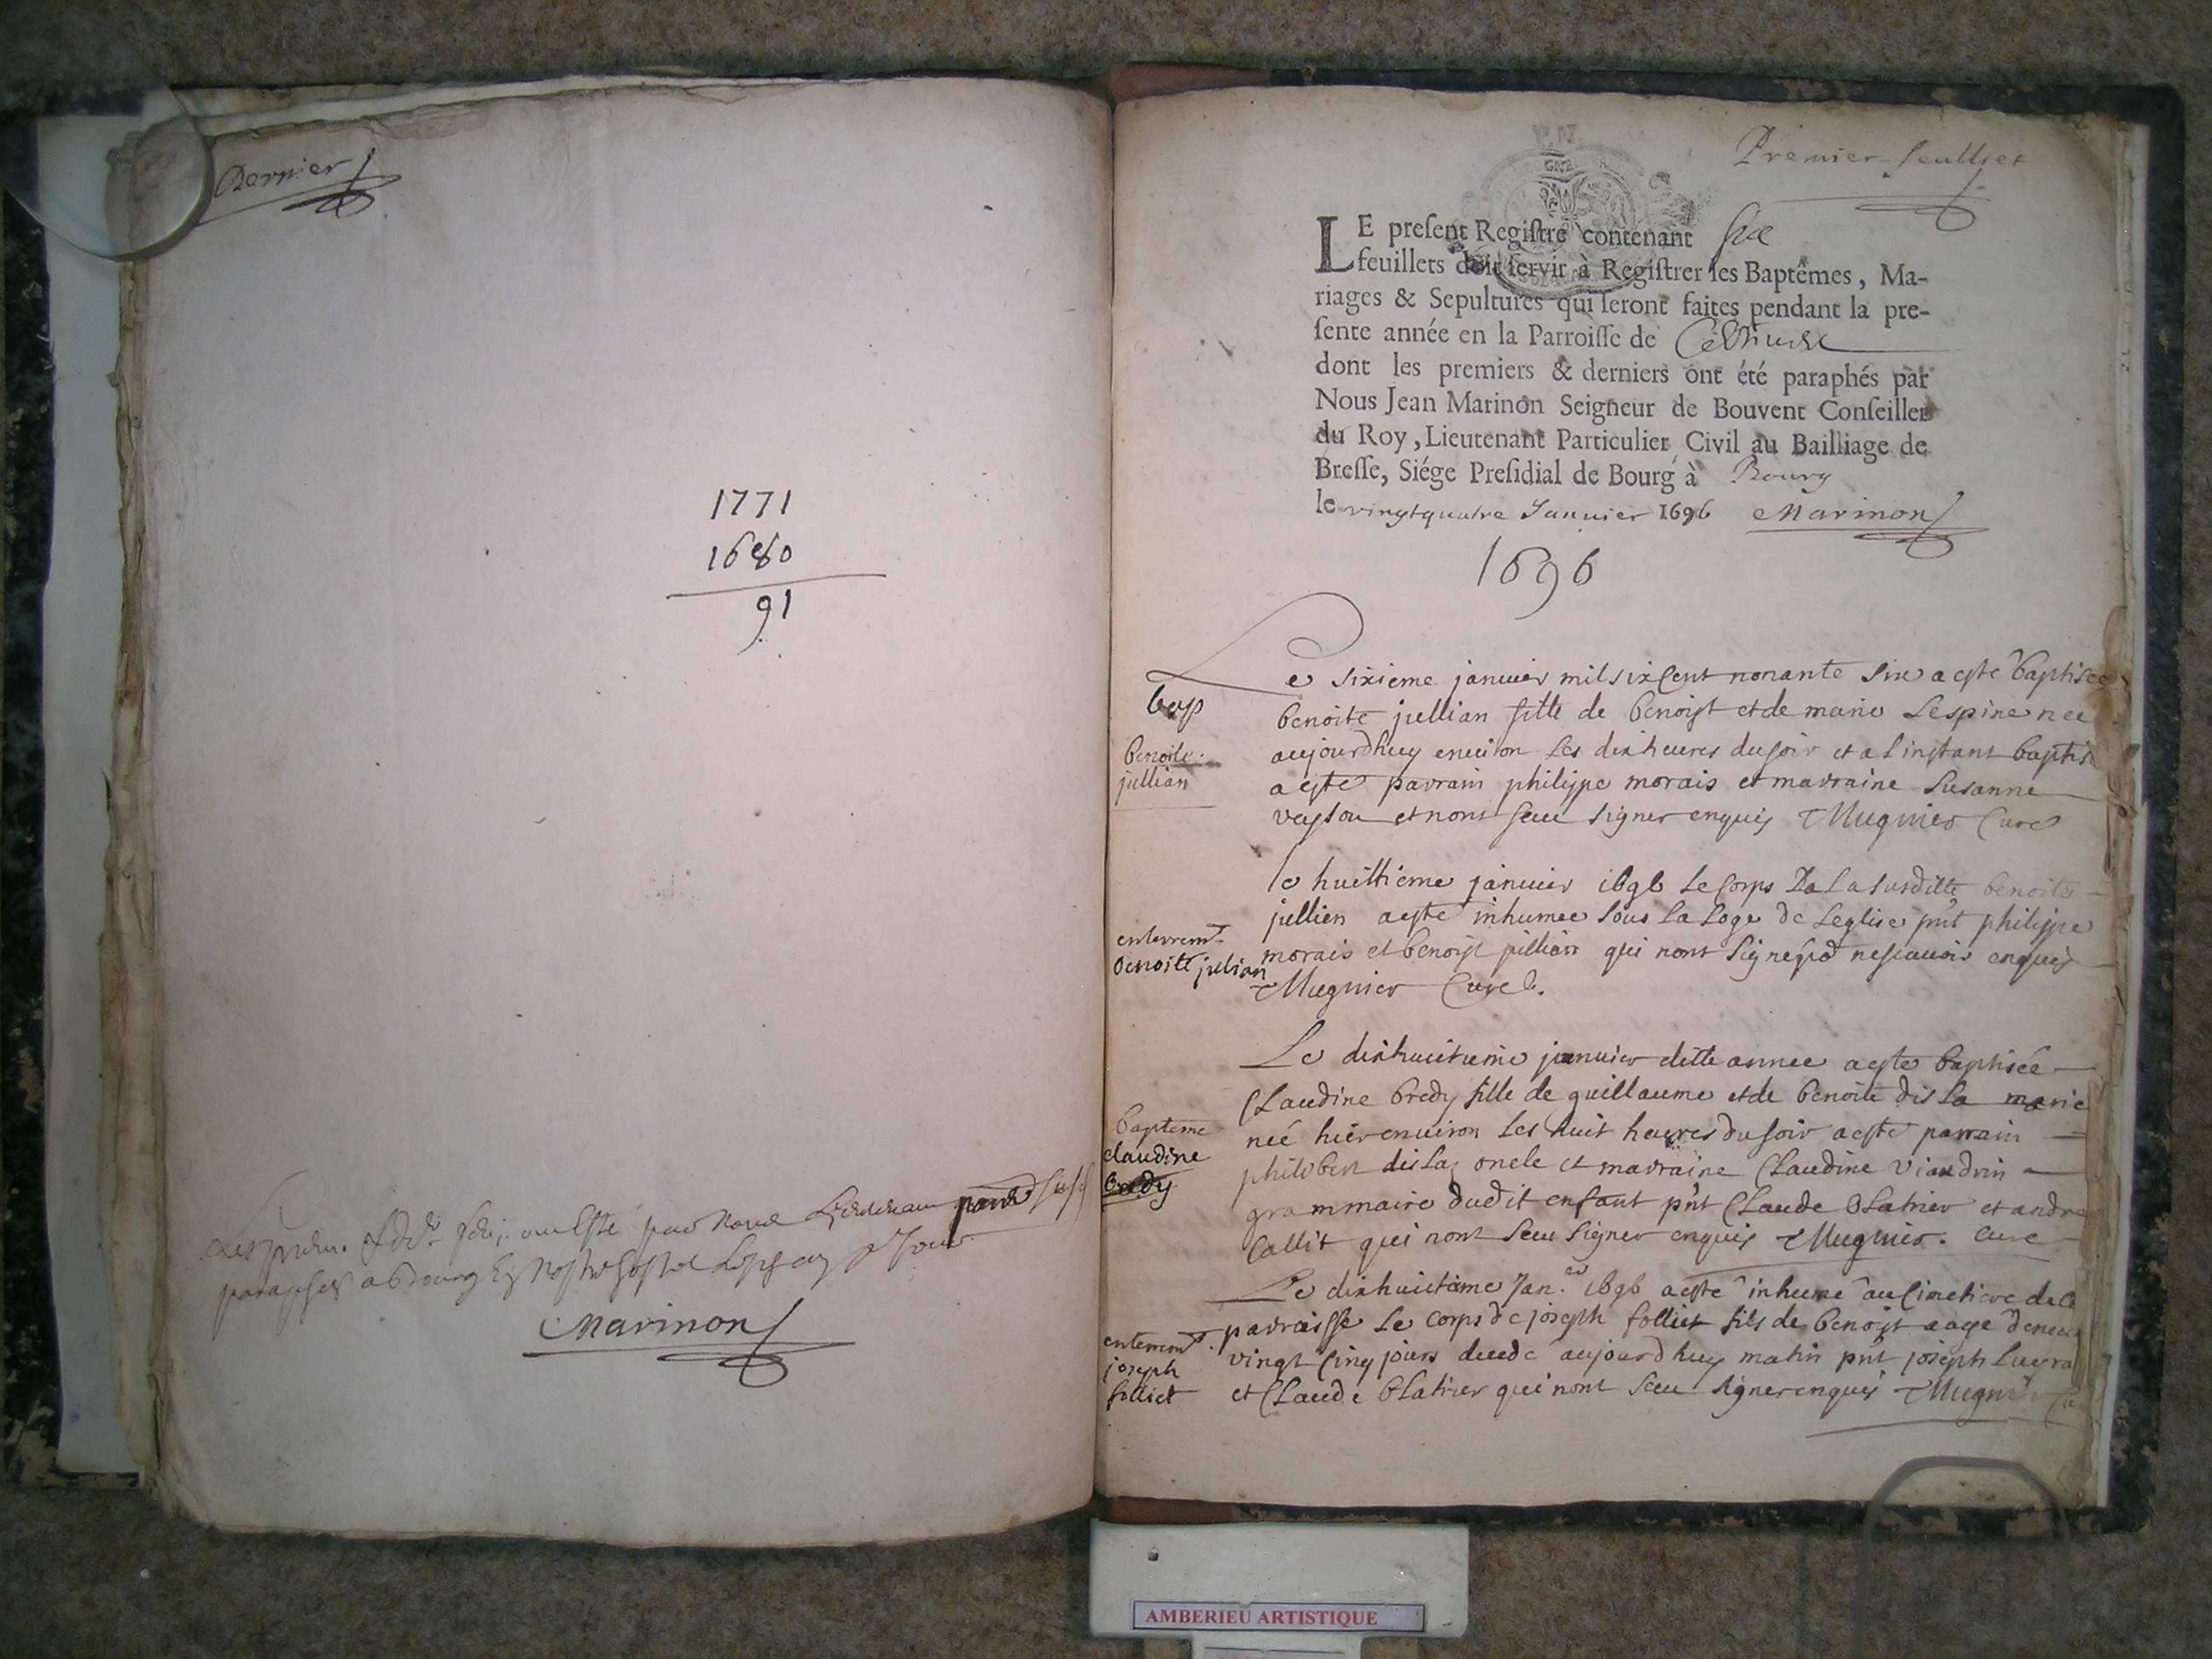 Dernier
1771
1680
91
par nous Lieutenant
paraphés a Bourg
Marinon
Premier feulliet
LE preſent Regiſtre contenant six
feuillets doit ſervir à Regiſtrer les Baptêmes, Ma-
riages & Sepultures qui ſeront faites pendant la pre-
ſente année en la Parroiſſe de
dont les premiers & derniers ont été paraphés par
Nous Jean Marinon Seigneur de Bouvent Conſeiller
du Roy, Lieutenant Particulier Civil au Bailliage de
Breſſe, Siége Preſidial de Bourg à Bourg
le vingtquatre Januier 1696 Marinon
1696
Le sixieme januier mil six cent nonante six a esté baptisee
bap
benoite jullian fille de benoist et de marie Lespine nee
benoite
jullian
aujourdhuy enuiron les dix heures du soir et a linstant baptis
a este parrain philippe morais et marraine Susanne
et nont sceu signer enquis Mugnier Curé
le huittieme januier 1696 le corps de la susditte benoite
jullien a esté inhumee sous la loge de leglise pnt philippe
enterremt
benoite julian
morais et benoist jullian qui nont signé po nescauoir enquis
Mugnier Curé
Le dixhuitieme januier ditte annee a este baptisée
Claudine bredy fille de guillaume et de benoite disla marié
bapteme
claudine
bredy
neé hier enuiron les huit heures du soir a esté parrain
philibert disla oncle et marraine Claudine viandrin
grammaire dudit enfant pnt Claude blatrier et andre
Callit qui nont sceu signer enquis Mugnier. Curé
Le dixhuitieme Jan.er 1696 a esté inhumé au Cimetiere de la
parroisse le corps de joseph folliet fils de benoist aagé denuir
enterremt
joseph
folliet
vingt cinq jours decedé aujourdhuy matin pnt joseph
et Claude blatrier qui nont sceu signer enquis Mugnier
AMBERIEU ARTISTIQUE